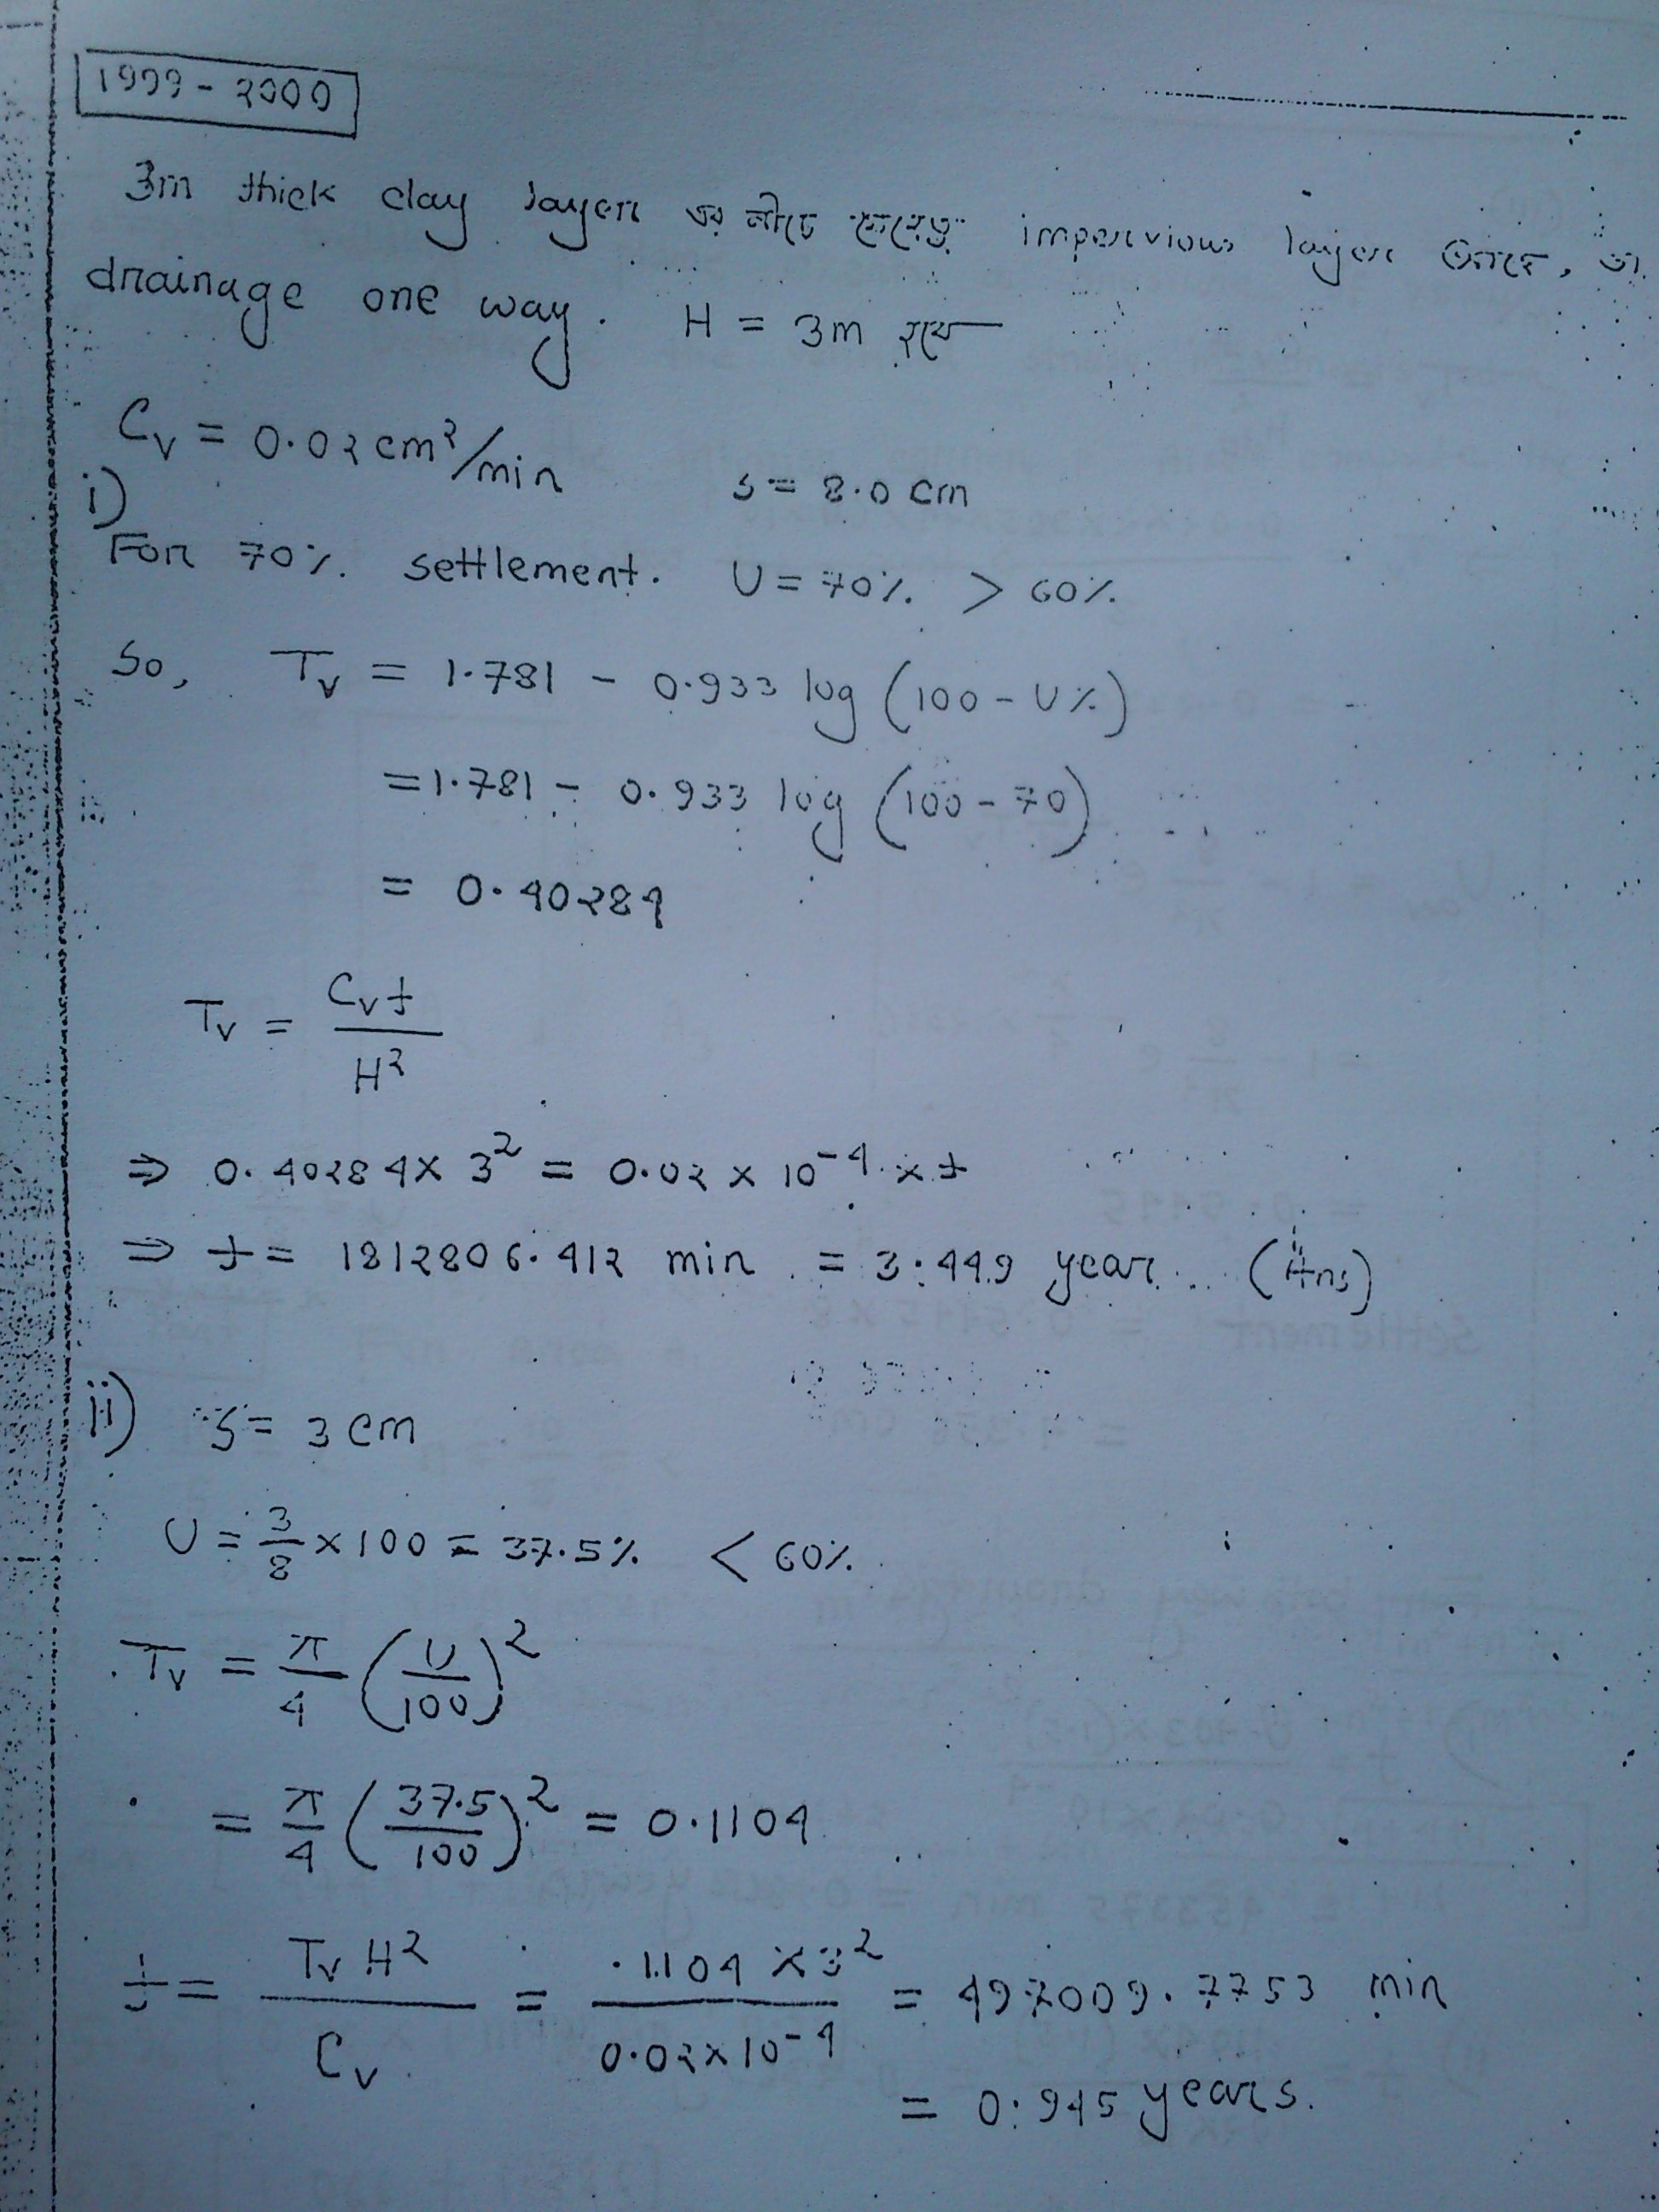 1999 - 2000
3m thick clay layer এর নীচে যেহেতু impervious layer আছে, তা
drainage one way. H = 3m হবে
Cv = 0.02 cm²/min s = 8.0 cm
i)
For 70% settlement. U = 70% > 60%
So, Tv = 1.781 - 0.933 log (100 - U%)
= 1.781 - 0.933 log (100 - 70)
= 0.40284
Tv = Cv t / H²
⇒ 0.40284 × 3² = 0.02 × 10⁻⁴ × t
⇒ t = 1812806.412 min = 3.449 year (Ans)
ii) S = 3 cm
U = 3/8 × 100 = 37.5% < 60%
Tv = π/4 (U/100)²
= π/4 (37.5/100)² = 0.1104
t = Tv H² / Cv = .1104 × 3² / 0.02 × 10⁻⁴ = 497009.7753 min
= 0.945 years.